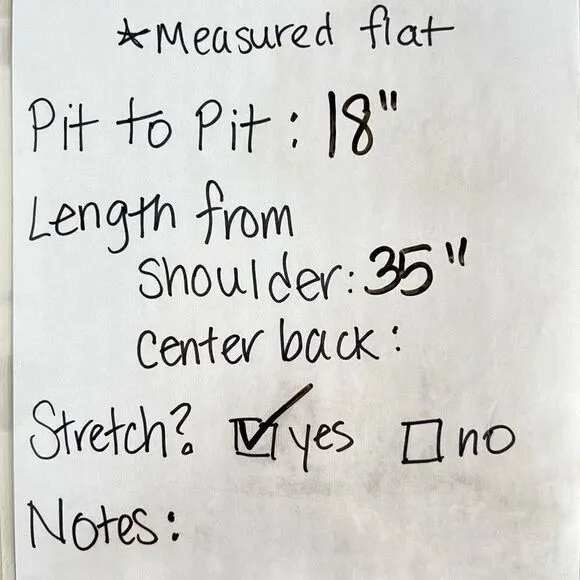 *Measured flat
Pit to Pit: 18"
Length from
shoulder: 35"
center back:
Stretch? ☑ yes ☐ no
Notes: